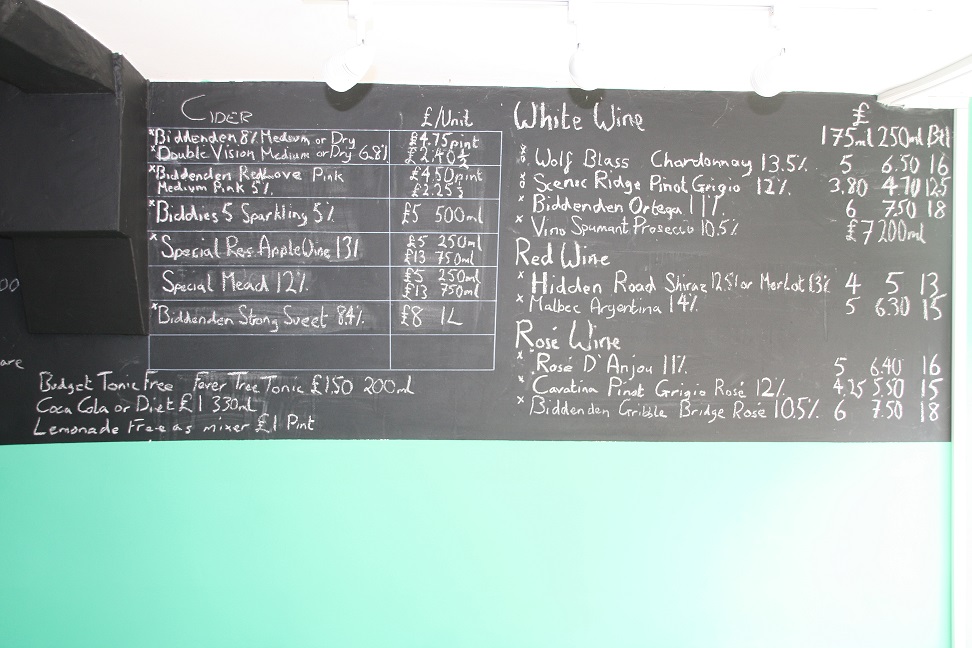 CIDER £/Unit
*Biddenden 8% Medium or Dry £4.75 pint
*Double Vision Medium or Dry 6.8% £2.40 ½
*Biddenden Pink £4.50 pint
Medium Pink 5% £2.25 ½
*Biddies 5 Sparkling 5% £5 500ml
*Special Res Apple Wine 13% £5 250ml
£13 750ml
Special Mead 12% £5 250ml
£13 750ml
*Biddenden Strong Sweet 8.4% £8 1L
Budget Tonic Free Fever Tree Tonic £1.50 200ml
Coca Cola or Diet £1 330ml
Lemonade Free as mixer £1 Pint
White Wine £
175ml 250ml Btl
Wolf Blass Chardonnay 13.5% 5 6.50 16
Scenic Ridge Pinot Grigio 12% 3.80 4.70 12.5
* Biddenden Ortega 11% 6 7.50 18
* Vino Spumant Prosecco 10.5% £7 200ml
Red Wine
* Hidden Road Shiraz 12.5% or Merlot 13% 4 5 13
* Malbec Argentina 14% 5 6.30 15
Rosé Wine
* Rosé D'Anjou 11% 5 6.40 16
* Cavatina Pinot Grigio Rosé 12% 4.25 5.50 15
* Biddenden Gribble Bridge Rose 10.5% 6 7.50 18